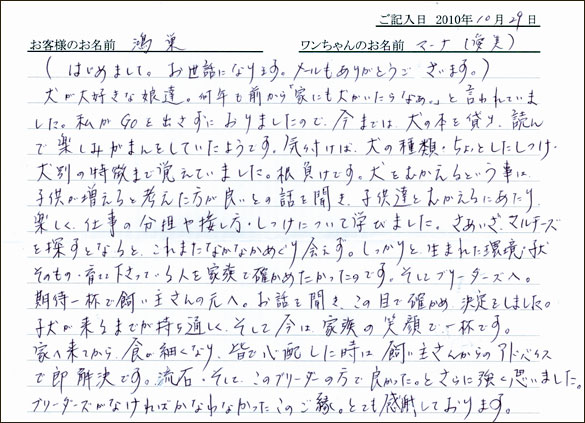 ご記入日 2010年10月29日
お客様のお名前 鴻巣 ワンちゃんのお名前 マーナ(愛美)
(はじめまして。お世話になります。メールもありがとうございます。)
犬が大好きな娘達。何年も前から「家にも犬がいたらなぁ。」と言われていま
した。私がGOと出さずにおりましたので、今までは、犬の本を借り、読ん
で楽しみがまんをしていたようです。気付けば、犬の種類・ちょとしたしつけ・
犬別の特徴まで覚えていました。根負けです。犬をむかえるという事は、
子供が増えると考えた方が良いとの話を聞き、子供達とむかえるにあたり、
楽しく、仕事の分担や接し方・しつけについて学びました。さあいざ、マルチーズ
を探すとなると、これまたなかなかめぐり会えず。しっかりと、生まれた環境・犬
そのもの・育て下さっている人を家族で確かめたかったのです。そしてブリーダーズへ。
期待一杯で飼い主さんの元へ。お話を聞き、この目で確かめ、決定をしました。
子犬が来るまでが待ち遠しく、そして今は、家族の笑顔で一杯です。
家へ来てから、食が細くなり、皆で心配した時は、飼い主さんからのアドバイス
で即解決です。流石・そして、このブリーダーの方で良かった。とさらに強く思いました。
ブリーダーズがなければかなわなかったこのご縁。とても感謝しております。